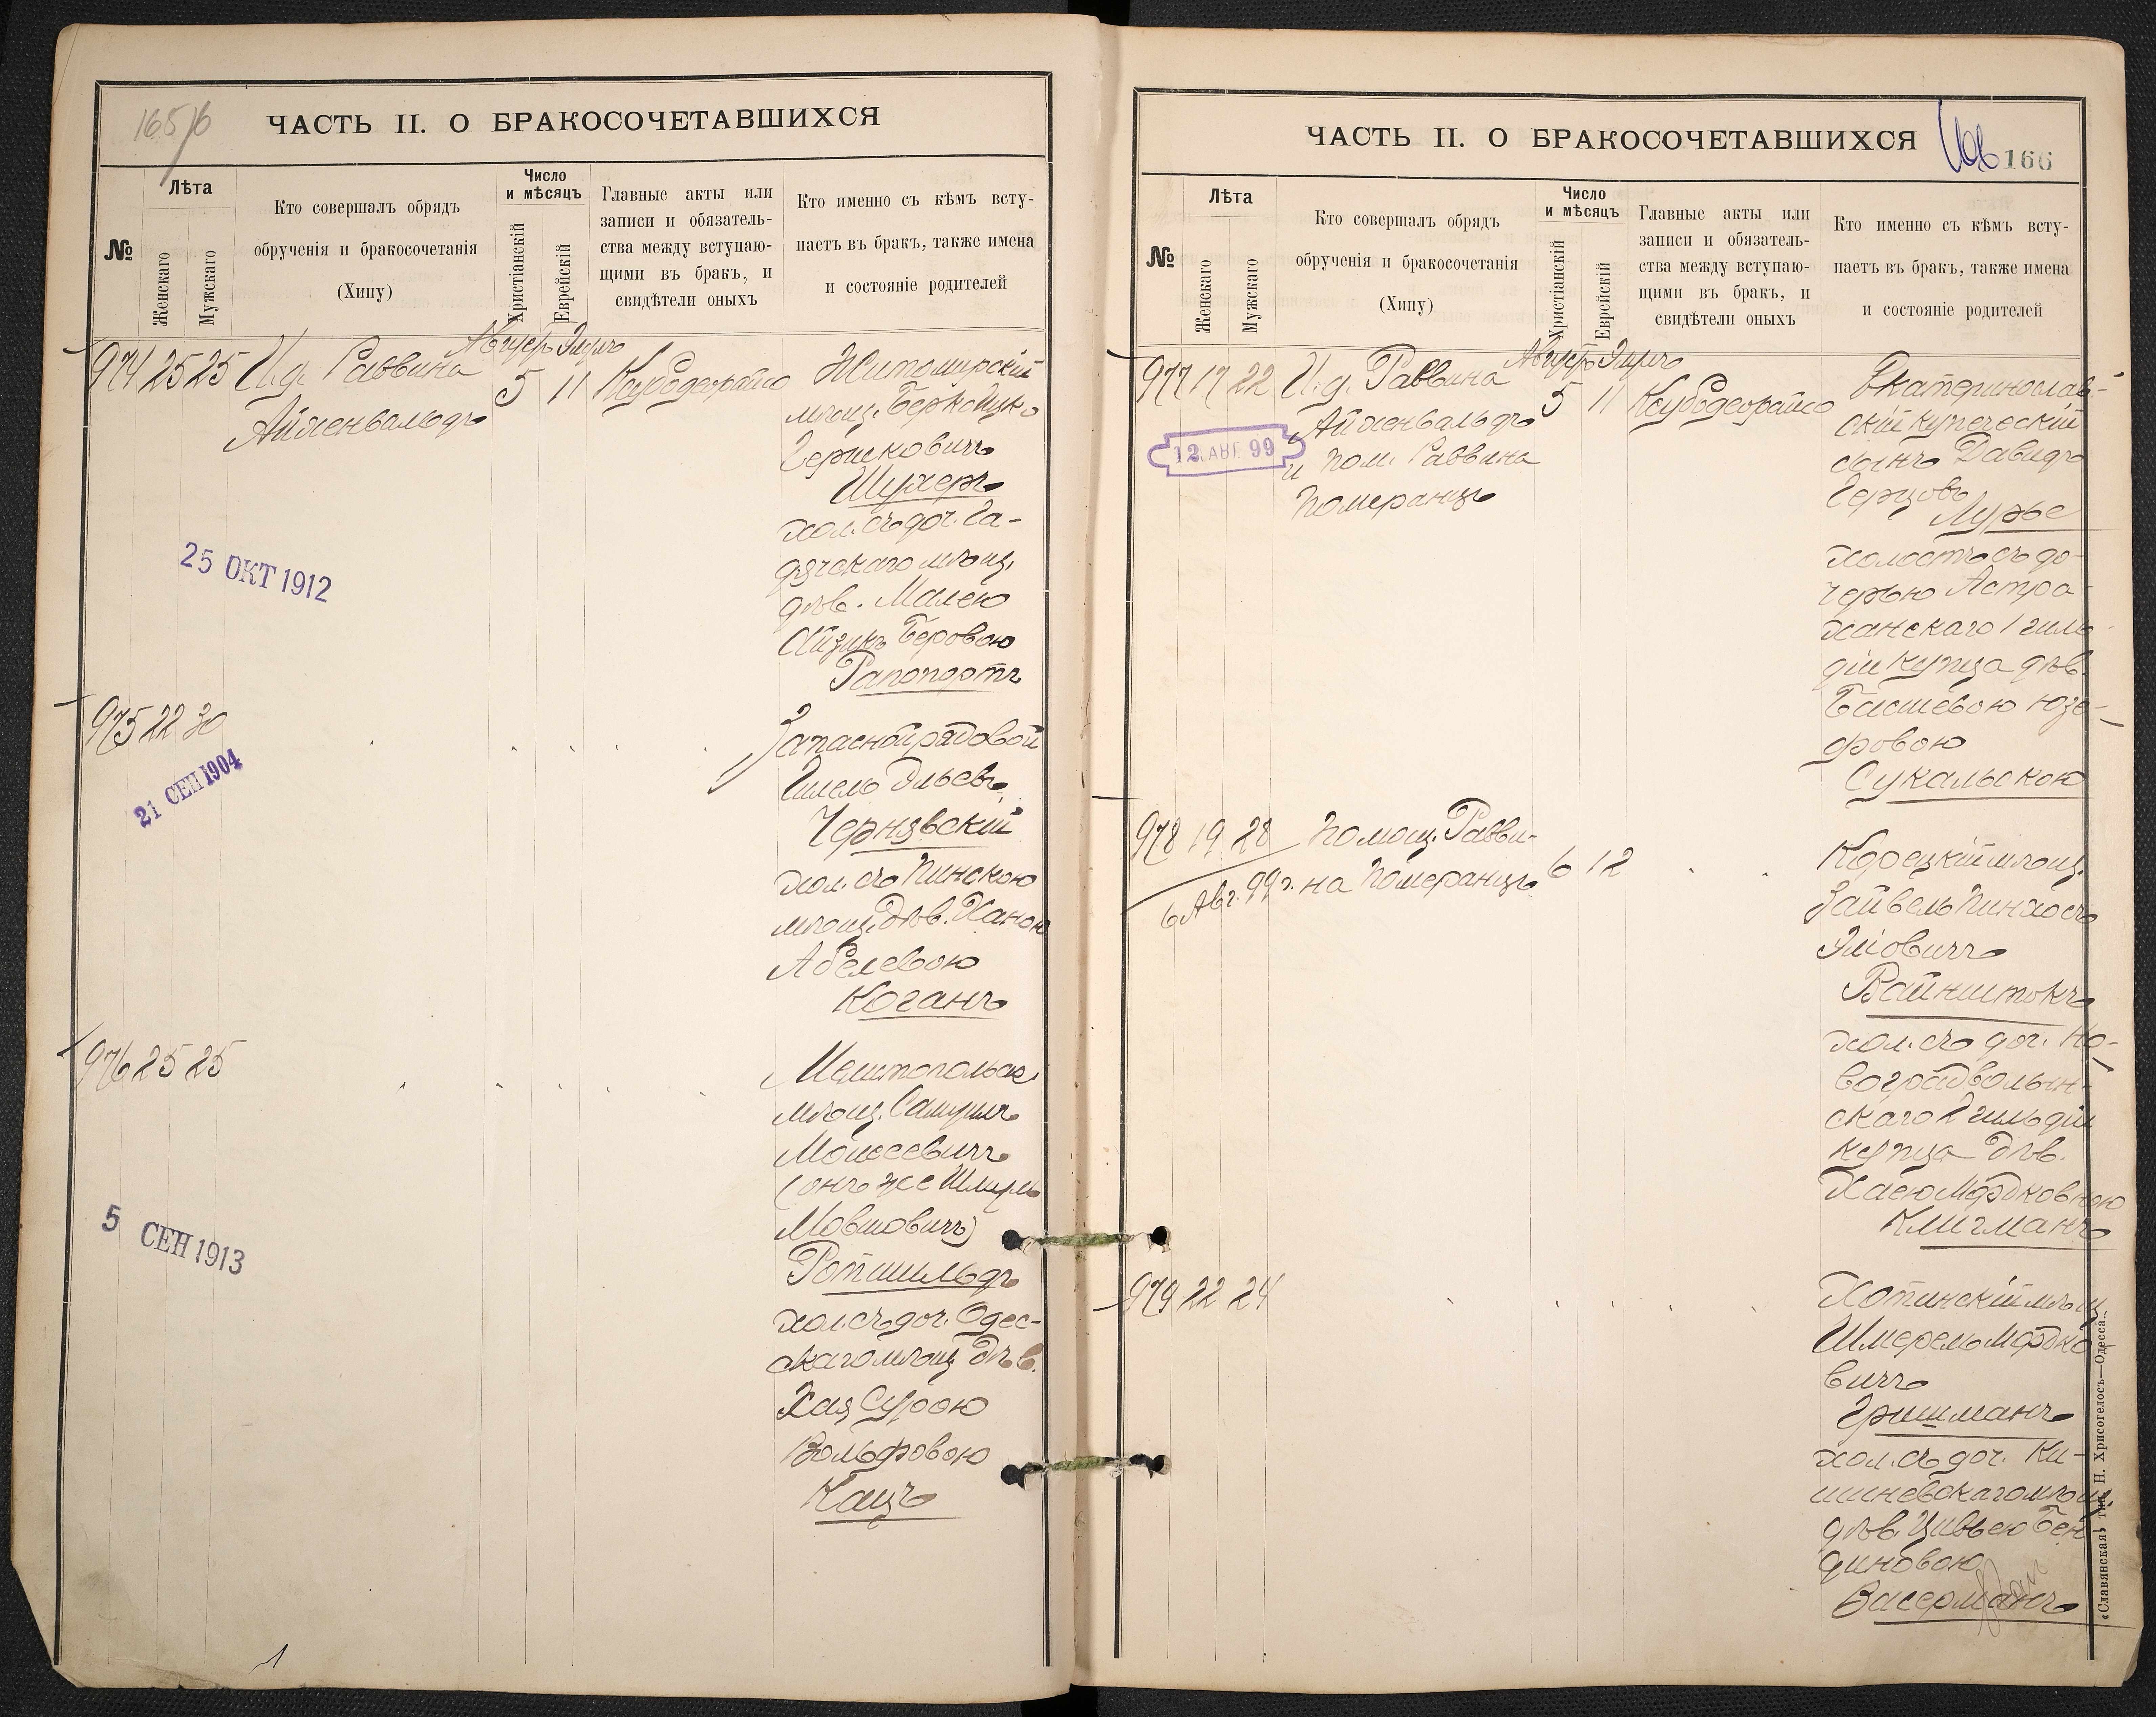 165/6
ЧАСТЬ II. О БРАКОСОЧЕТАВШИХСЯ
№
Лѣта
Женскаго
Мужскаго
Кто совершалъ обрядъ
обрученія и бракосочетанія
(Хипу)
Число
и мѣсяцъ
Христіанскій
Еврейскій
Главные акты или
записи и обязатель-
ства между вступаю-
щими въ бракъ, и
свидѣтели оныхъ
Кто именно съ кѣмъ всту-
паетъ въ бракъ, также имена
и состояніе родителей
974 25 25 И.д. Раввина
Айхенвальдъ
5 11
Житомирскій
мѣщ. Берко Ицко
Гершковичъ
Шухеръ
хол. съ доч. Га-
дячскаго мѣщ.
дѣв. Малею
Айзикъ Беровою
Рапопортъ
25 ОКТ 1912
975 22 30
Запасной рядовой
Гилель Эльевъ
Чернявскій
хол. съ Пинскою
мѣщ. Дѣв. Ханою
Абелевою
Коганъ
21 СЕН 1904
976 25 25
Мелитопольск.
мѣщ. Самуилъ
Моисеевичъ
(онъ же Шмуль
Мовшовичъ)
Ротшильдъ
хол. съ доч. Одес-
скаго мѣщ. Дѣв.
Хая Сурою
Вольфовою
Кацъ
5 СЕН 1913
ЧАСТЬ II. О БРАКОСОЧЕТАВШИХСЯ
166 166
№
Лѣта
Женскаго
Мужскаго
Кто совершалъ обрядъ
обрученія и бракосочетанія
(Хипу)
Число
и мѣсяцъ
Христіанскій
Еврейскій
Главные акты или
записи и обязатель-
ства между вступаю-
щими въ бракъ, и
свидѣтели оныхъ
Кто именно съ кѣмъ всту-
паетъ въ бракъ, также имена
и состояніе родителей
977 17 22 И.д. Раввина
Айхенвальдъ
и Пом. Раввина
Померанцъ
5 11
12. АВГ. 99
Екатеринослав-
скій купеческій
сынъ Давидъ
Герцовъ
Лурье
холостъ съ до-
черью Астра-
ханскаго 1 гиль-
діи купца дѣв.
Басшевою Юзе-
фовою
Сукальскою
978 19 28 Помощ. Равви-
на Померанцъ 6 12
6 Авг. 99 г.
Корецкій мѣщ.
Зайвель Пинхосъ
Эліовичъ
Вайнштокъ
хол. съ доч. Но-
воградволын-
скаго 2 гильдіи
купца Дѣв.
Хаею Мордковною
Клигманъ
979 22 24
Хотинскій мѣщ.
Шмерель Мордко-
вичъ
Гришманъ
хол. съ доч. Ки-
шиневскаго мѣщ.
дѣв. Цивьею Бен
диновою
Васерманъ
«Славянская» тип. Н. Хрисогелосъ—Одесса.